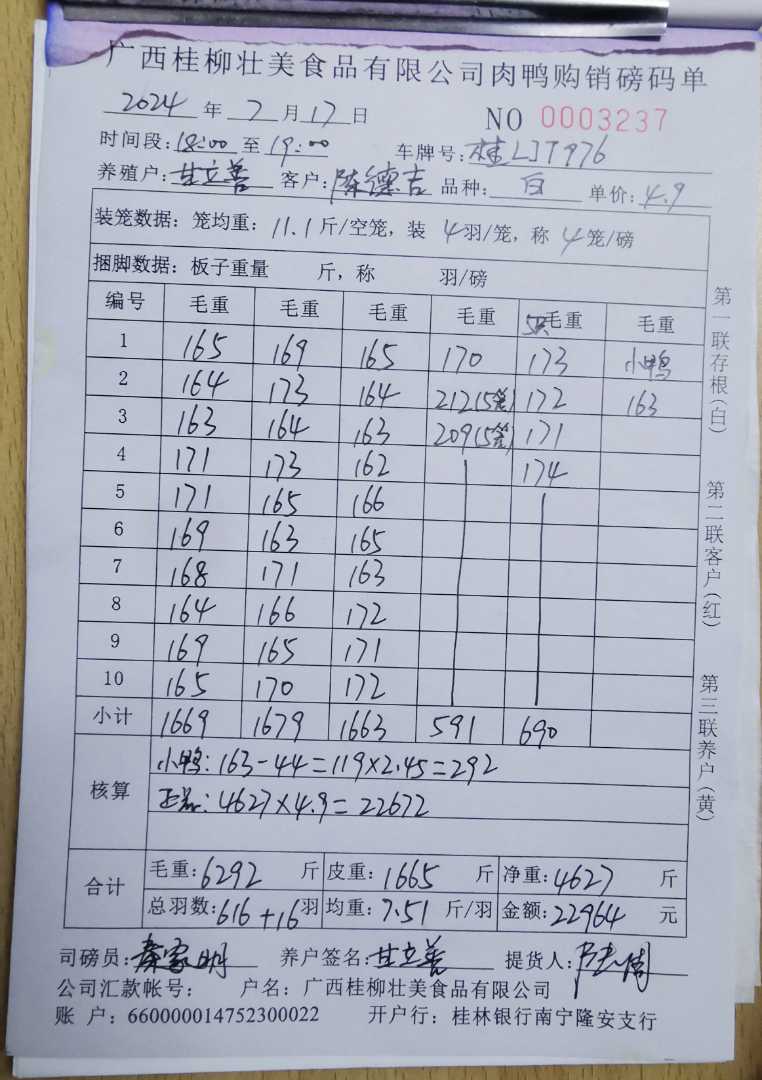 广西桂柳壮美食品有限公司肉鸭购销磅码单
2024 年 7 月 17 日 NO 0003237
时间段: 18:00 至 19:00 车牌号: 桂LJT976
养殖户: 甘立善 客户: 陈德吉 品种: 白 单价: 4.9
装笼数据: 笼均重: 11.1 斤/空笼, 装 4 羽/笼, 称 4 笼/磅
捆脚数据: 板子重量 斤, 称 羽/磅
编号 毛重 毛重 毛重 毛重 5只毛重 毛重
1 165 169 165 170 173 小鸭
2 164 173 164 212(5笼) 172 163
3 163 164 163 209(5笼) 171
4 171 173 162 174
5 171 165 166
6 169 163 165
7 168 171 163
8 164 166 172
9 169 165 171
10 165 170 172
小计 1669 1679 1663 591 690
核算 小鸭: 163-44=119×2.45=292
正品: 4627×4.9=22672
合计 毛重: 6292 斤 皮重: 1665 斤 净重: 4627 斤
总羽数: 616+16 羽 均重: 7.51 斤/羽 金额: 22964 元
司磅员: 秦家明 养户签名: 甘立善 提货人:
公司汇款帐号: 户名: 广西桂柳壮美食品有限公司
账 户: 660000014752300022 开户行: 桂林银行南宁隆安支行
第一联存根(白)
第二联客户(红)
第三联养户(黄)